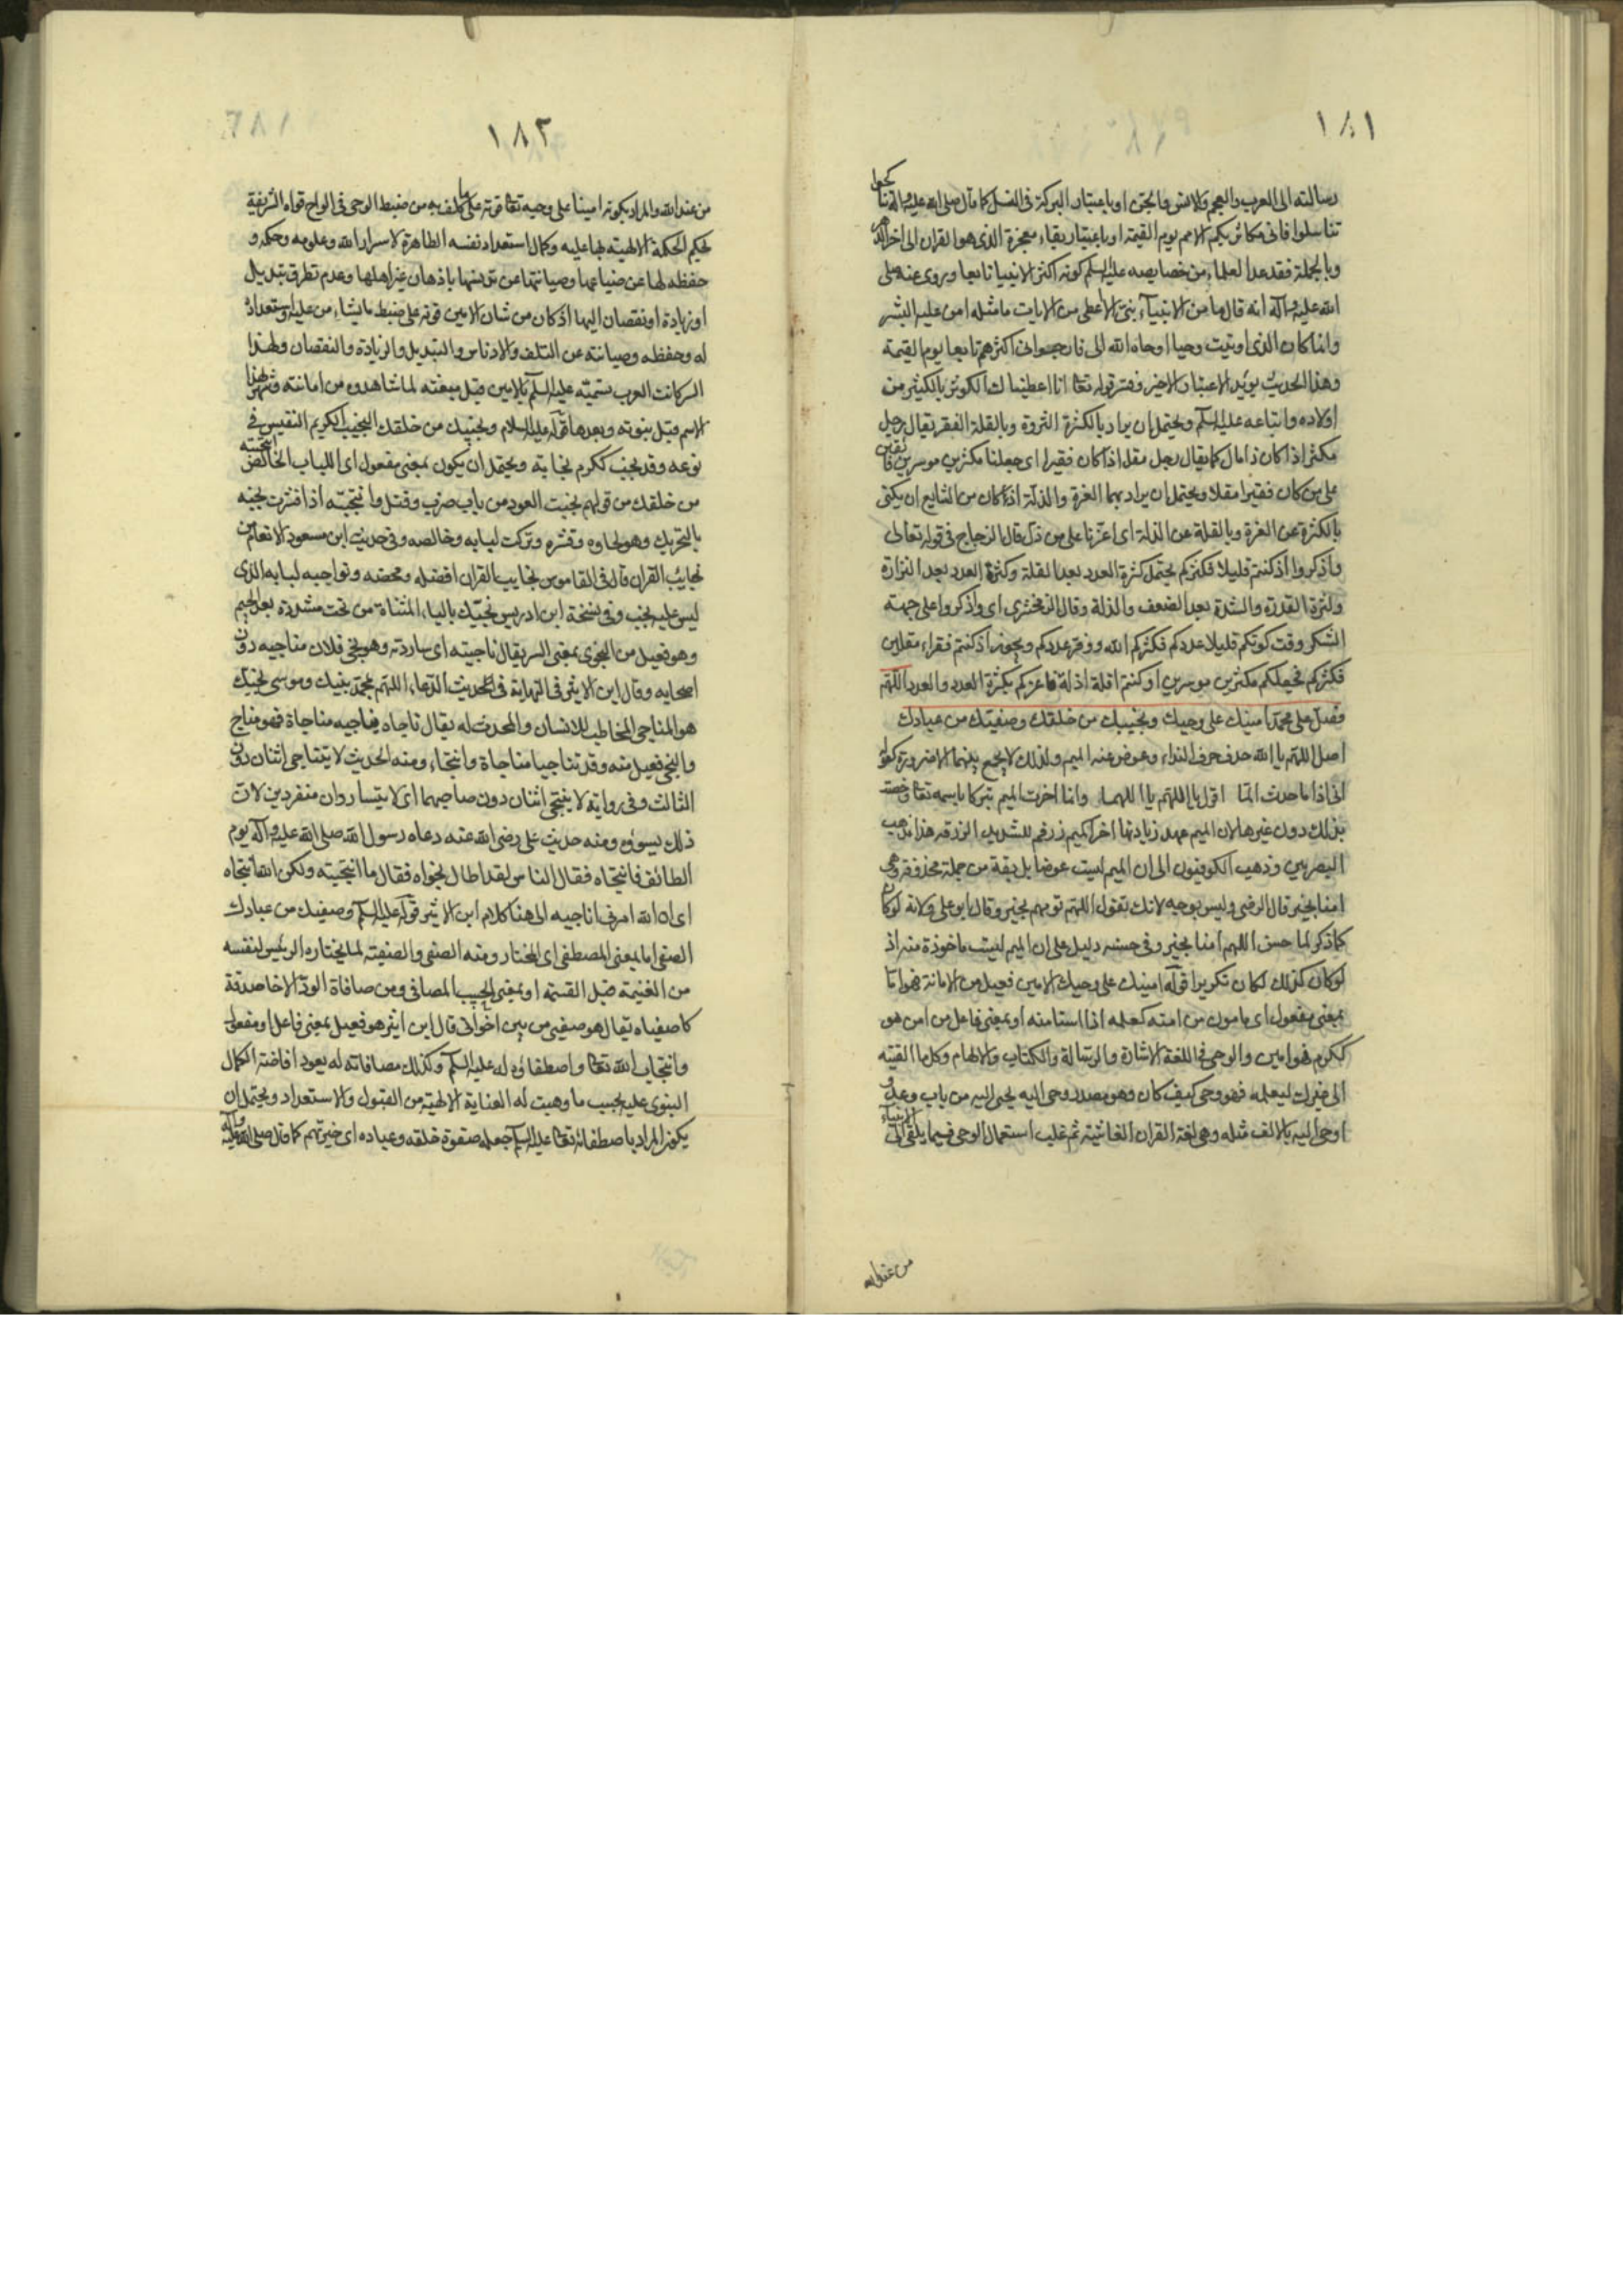 ١٨١
رسالته الى العرب والعجم والانس والجن او باعتبار البركة فى النسل كما قال صلى الله عليه واله تناكحوا
تناسلوا فانى مكاثر بكم الامم يوم القيمة او باعتبار بقاء معجزة الذى هو القران الى اخر الدهر
وبالجملة فقد عد العلماء من خصايصه عليه السلم كونه اكثر الانبيا تابعا ويروى عنه صلى
الله عليه واله انه قال ما من الانبياء نبى الا اعطى من الايات ما مثله امن عليه البشر
وانما كان الذى اوتيت وحيا اوحاه الله الى فارجوا انى اكثرهم تابعا يوم القيمة
وهذا الحديث يويد الاعتبار الاخير وفسر قوله تعا انا اعطيناك الكوثر بالكثير من
اولاده واتباعه عليه السلم ويحتمل ان يراد بالكثرة الثروة وبالقلة الفقر يقال رجل
مكثر اذا كان ذا مال كما يقال رجل مقل اذا كان فقيرا اى جعلنا مكثرين موسرين فائقين
على من كان فقيرا مقلا ويحتمل ان يراد بهما العزة والذلة اذ كان من الشايع ان يكنى
بالكثرة عن العزة وبالقلة عن الذلة اى اعزنا على من ذل قال الزجاج فى قوله تعالى
واذكروا اذ كنتم قليلا فكثركم يحتمل كثرة العدد بعد القلة وكثرة العدد بعد النزارة
وكثرة القدرة والشدة بعد الضعف والذلة وقال الزمخشرى اى واذكروا على جهة
الشكر وقت كونكم قليلا عددكم فكثركم الله ووفر عددكم ويجوز اذ كنتم فقراء مقلين
فكثركم فجعلكم مكثرين موسرين او كنتم اقلة اذلة فاعزكم بكثرة العدد والعدد اللهم
فصل على محمد امينك على وحيك ونجيبك من خلقك وصفيك من عبادك
اصل اللهم يا الله حذف حرف النداء وعوض عنه الميم ولذلك لا يجمع بينهما الا ضرورة كقوله
انى اذا ما حدث الما اقول يا اللهم يا اللهما وانما اخرت الميم تبركا باسمه تعا وخصت
بذلك دون غيرها لان الميم عهد زيادتها اخرا كميم زرقم للشديد الزرقه هذا مذهب
البصريين وذهب الكوفيون الى ان الميم ليست عوضا بل بقية من جملة محذوفة وهى
امنا بخير قال الرضى وليس بوجيه لانك تقول اللهم تومهم بخير وقال ابو على ولانه لو كان
كما ذكر لما حسن اللهم امنا بخير وفى حسنه دليل على ان الميم ليست ماخوذة منه اذ
لو كان كذلك لكان تكريرا قوله امينك على وحيك الامين فعيل من الامانة فهو اما
بمعنى مفعول اى مامون من امنه كعلمه اذا استامنه او بمعنى فاعل من امن هو
ككرم فهو امين والوحى فى اللغة الاشارة والرسالة والكتاب والالهام وكل ما القيته
الى غيرك ليعلمه فهو وحى كيف كان وهو مصدر وحى اليه يحى اليه من باب وعد و
اوحى اليه بالالف مثله وهى لغة القران الفاشية ثم غلب استعمال الوحى فيما يلقى الى الانبياء
من عند الله
١٨٢
من عند الله والمراد بكونه امينا على وحيه تعا قوته على ما كلف به من ضبط الوحى فى الواح قواه الشريفة
لحكم الحكمة الالهية لها عليه وكمال استعداد نفسه الطاهرة لاسرار الله وعلومه وحكمه و
حفظه لها عن ضياعها وصيانتها عن تدنسها باذهان غير اهلها وعدم تطرق تبديل
او زيادة او نقصان اليها اذ كان من شان الامين قوته على ضبط ما يشاء من عليه واستعداده
له وحفظه وصيانته عن التلف والادناس والتبديل والزيادة والنقصان ولهذا
السر كانت العرب تسميه عليه السلم بالامين قبل مبعثه لما شاهدوه من امانته وشهر بهذا
الاسم قبل نبوته وبعدها قوله عليه السلام ونجيبك من خلقك النجيب الكريم النفيس فى
نوعه وقد نجب ككرم نجابة ويحتمل ان يكون بمعنى مفعول اى اللباب الخالص
من خلقك من قولهم نجبت العود من باب ضرب وقتل وانتجبته اذا قشرت نجبه
بالتحريك وهو لحاوه وقشره وتركت لبابه وخالصه وفى حديث ابن مسعود الانعام من
نجايب القران قال فى القاموس نجايب القران افضله ومحضه ونواجبه لبابه الذى
ليس عليه نجب وفى نسخة ابن ادريس نجيك بالياء المثناة من تحت مشددة بعد الجيم
وهو فعيل من النجوى بمعنى السر يقال ناجيته اى ساررته وهو نجى فلان مناجيه دون
اصحابه وقال ابن الاثير فى النهاية فى الحديث الدعاء اللهم بمحمد نبيك وموسى نجيك
هو المناجى المخاطب للانسان والمحدث له يقال ناجاه يناجيه مناجاة فهو مناج
والنجى فعيل منه وقد تناجيا مناجاة وانتجاء ومنه الحديث لا يتناجى اثنان دون
الثالث وفى رواية لا ينتجى اثنان دون صاحبهما اى لا يتساروان منفردين لان
ذلك يسوئه ومنه حديث على رضى الله عنه دعاه رسول الله صلى الله عليه واله يوم
الطائف فانتجاه فقال الناس لقد اطال نجواه فقال ما انتجيته ولكن الله انتجاه
اى ان الله امرنى اناجيه الى هنا كلام ابن الاثير قوله عليه السلم وصفيك من عبادك
الصفى اما بمعنى المصطفى اى المختار ومنه الصفى والصفية لما يختاره الرئيس لنفسه
من الغنيمة قبل القسمة او بمعنى الحبيب المصافى ومن صافاة الود الاخا صدقة
كاصفياه يقال هو صفيى من بين اخوانى قال ابن اثير هو فعيل بمعنى فاعل او مفعول
وانتجاب الله تعا واصطفاؤه له عليه السلم وكذلك مصافاته له يعود افاضة الكمال
النبوى عليه بحسب ما وهبت له العناية الالهية من القبول والاستعداد ويحتمل ان
يكون المراد باصطفائه تعا عليه السلم جعله صفوة خلقه وعباده اى خيرتهم كما قال صلى الله عليه واله